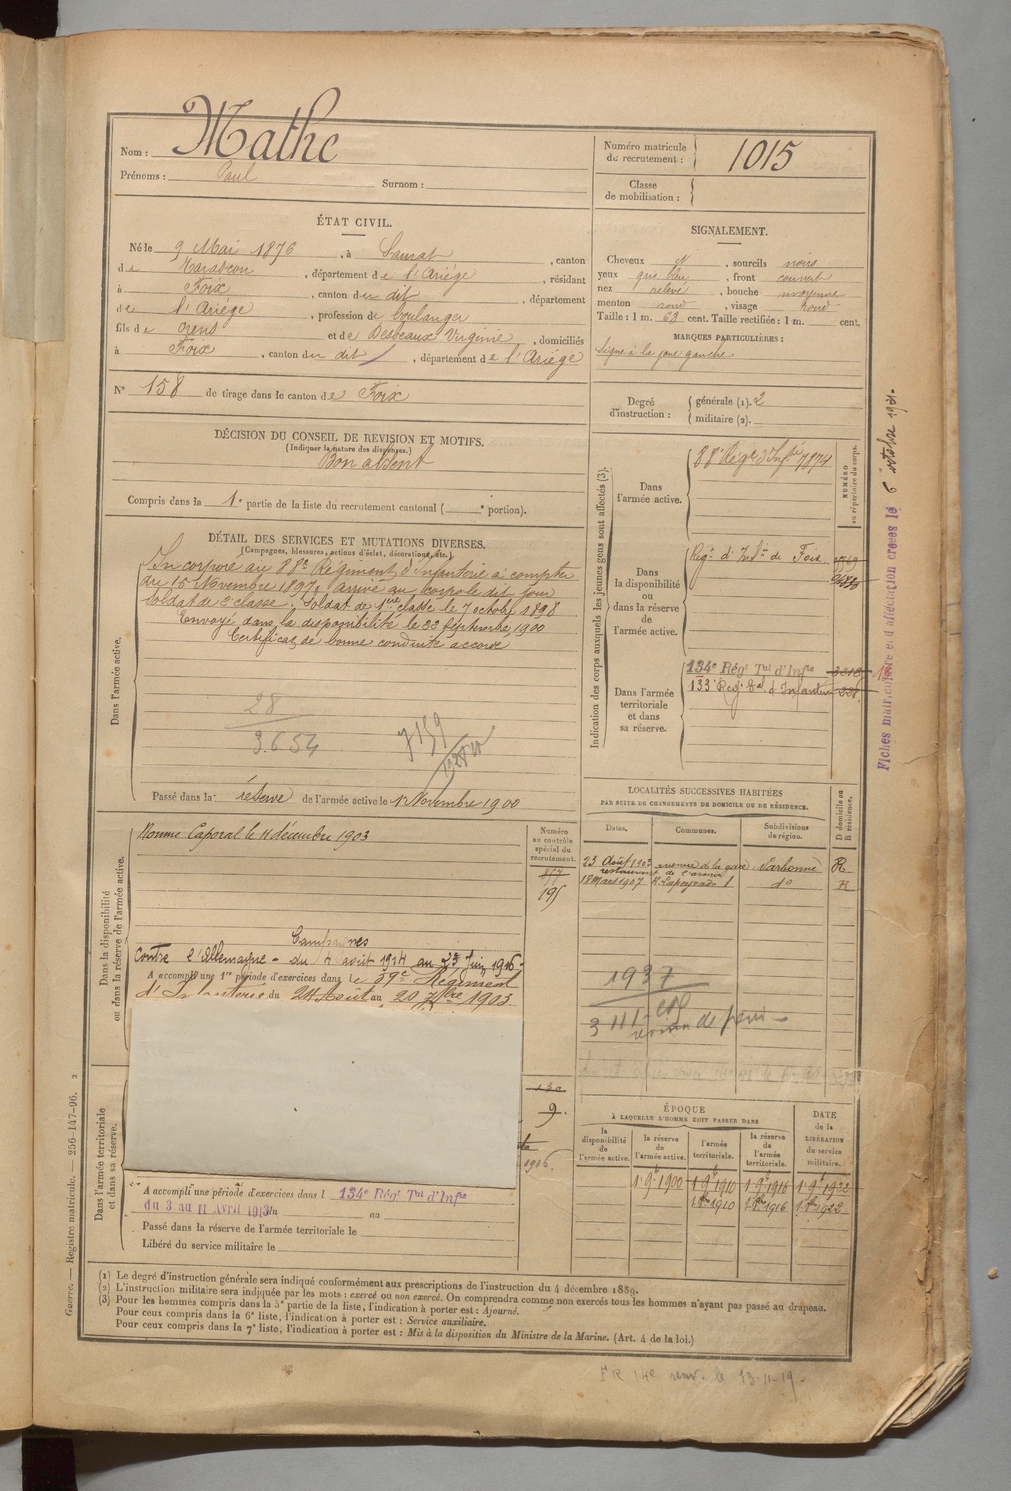 Nom : Mathe
Prénoms : Paul Surnom :
Numéro matricule de recrutement : 1015
Classe de mobilisation :
ÉTAT CIVIL.
Né le 9 Mai 1876, à Saurat, canton
de Tarascon, département de l'Ariège, résidant
à Foix, canton du dit, département
de l'Ariège, profession de boulanger
fils de Orens et de Desbeaux Virginie, domiciliés
à Foix, canton du dit, département de l'Ariège
N° 158 de tirage dans le canton de Foix
SIGNALEMENT.
Cheveux N, sourcils noirs
yeux gris bleu, front couvert
nez relevé, bouche moyenne
menton rond, visage rond
Taille : 1 m. 63 cent. Taille rectifiée : 1 m. cent.
MARQUES PARTICULIÈRES :
Signe à la joue gauche
Degré d'instruction : générale (1). 2
militaire (2).
DÉCISION DU CONSEIL DE REVISION ET MOTIFS.
(Indiquer la nature des dispenses.)
Bon absent
Compris dans la 1e partie de la liste du recrutement cantonal ( e portion).
DÉTAIL DES SERVICES ET MUTATIONS DIVERSES.
(Campagnes, blessures, actions d'éclat, décorations, etc.)
Dans l'armée active.
Incorporé au 88e Régiment d'Infanterie à compter
du 15 Novembre 1897, arrivé au corps le dit jour
soldat de 2e classe. Soldat de 1ère classe le 7 octobre 1898
Envoyé dans la disponibilité le 22 Septembre 1900
Certificat de bonne conduite accordé
28
3.654
7159
Passé dans la réserve de l'armée active le 1r Novembre 1900
Indication des corps auxquels les jeunes gens sont affectés (3).
NUMÉRO au répertoire du corps.
Dans l'armée active.
88e Régt d'Infie 7874
Dans la disponibilité ou dans la réserve de l'armée active.
Régt d'Infie de Foix
Dans l'armée territoriale et dans sa réserve.
134e Régt Tal d'Infie
133e Régt Tal d'Infanterie
Fiches matriculaire et d'affectation créées le 6 octobre
LOCALITÉS SUCCESSIVES HABITÉES
PAR SUITE DE CHANGEMENTS DE DOMICILE OU DE RÉSIDENCE.
D domicile ou R résidence.
Dates. Communes. Subdivisions de région.
23 Août 1903 avenue de la gare Narbonne R.
restaurant de l'avenir
18 Mars 1907 R. Lapeyrade 1 do R
1937
Dans la disponibilité ou dans la réserve de l'armée active.
Nommé Caporal le 11 décembre 1903
Numéro au contrôle spécial du recrutement.
877
195
Campagnes
Contre l'Allemagne - du 4 août 1914 au 23 Juin 1916 -
A accompli une 1re période d'exercices dans le 59e Régiment
d'Infanterie du 24 Août au 20 7bre 1903
9.
1916.
Dans l'armée territoriale et dans sa réserve.
A accompli une période d'exercices dans l 134e Régt Tal d'Infie
du 3 au 11 Avril 1913 du au
Passé dans la réserve de l'armée territoriale le
Libéré du service militaire le
ÉPOQUE
À LAQUELLE L'HOMME DOIT PASSER DANS
DATE de la LIBÉRATION du service militaire.
la disponibilité de l'armée active.
la réserve de l'armée active.
l'armée territoriale.
la réserve de l'armée territoriale.
1r 9e 1900 1r 9e 1910 1r 9e 1916 1r 9e 1922
1 8bre 1910 1 8bre 1916 1 8bre 1922
Guerre. — Registre matricule. — 256-147-96. 2
(1) Le degré d'instruction générale sera indiqué conformément aux prescriptions de l'instruction du 4 décembre 1889.
(2) L'instruction militaire sera indiquée par les mots : exercé ou non exercé. On comprendra comme non exercés tous les hommes n'ayant pas passé au drapeau.
(3) Pour les hommes compris dans la 5e partie de la liste, l'indication à porter est : Ajourné.
Pour ceux compris dans la 6e liste, l'indication à porter est : Service auxiliaire.
Pour ceux compris dans la 7e liste, l'indication à porter est : Mis à la disposition du Ministre de la Marine. (Art. 4 de la loi.)
le 13-11-19-